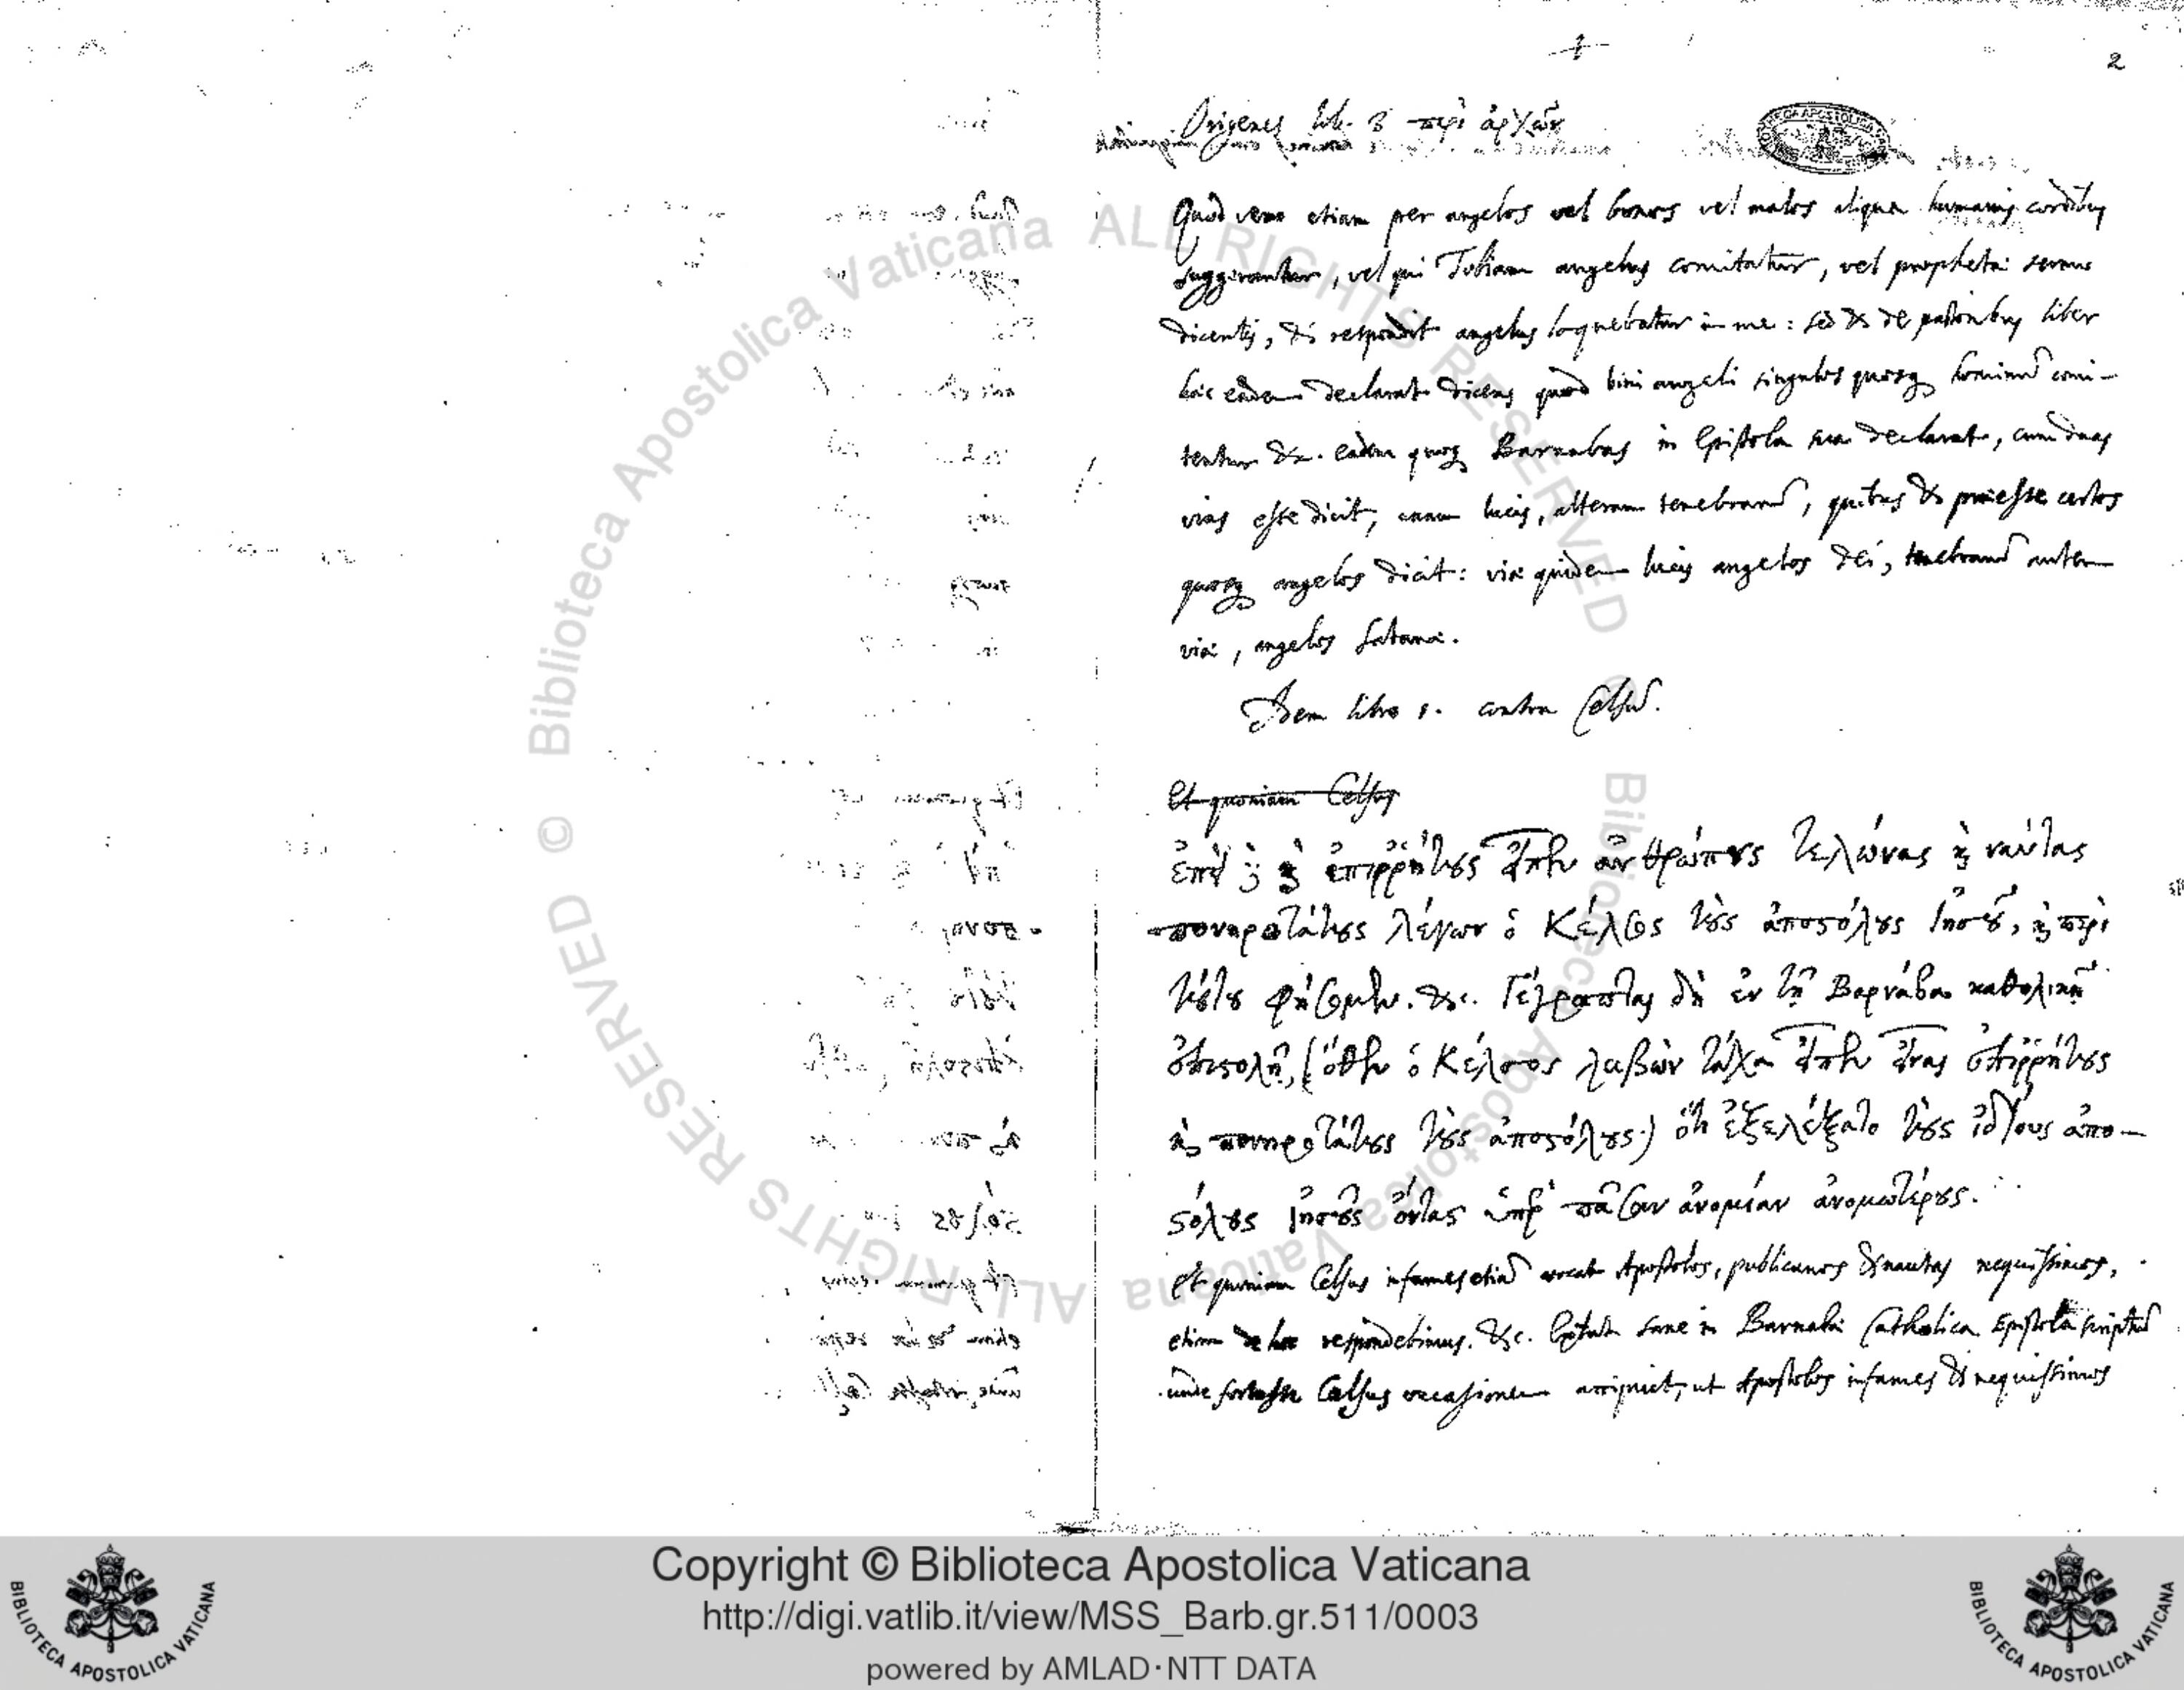 2
Origenes lib. 3 περὶ ἀρχῶν
Quod vero etiam per angelos vel bonos vel malos aliqua humanis cordibus
suggerantur, vel qui Tobiam angelus comitatur, vel prophetæ sermo
dicentis, & respondit angelus loquebatur in me: sed & de pastoribus liber
hæc eadem declarat dicens quod bini angeli singulos quosq; hominū comi-
tentur &c. eadem quoq; Barnabas in Epistola sua declarat, cum duas
vias esse dicit, unam lucis, alteram tenebrarū, quibus & præesse certos
quosq; angelos dicit: viæ quidem lucis angelos dei, tenebrarū autem
viæ, angelos Satanæ.
Idem libro 1. contra Celsū.
Et quoniam Celsus
ἐπεὶ δὲ καὶ ἐπιρρήτους εἶπεν ἀνθρώπους τελώνας καὶ ναύτας
πονηροτάτους λέγων ὁ Κέλσος τοὺς ἀποστόλους Ἰησοῦ, καὶ περὶ
τούτου φήσομεν. &c. Γέγραπται δὴ ἐν τῇ Βαρνάβα καθολικῇ
ἐπιστολῇ, (ὅθεν ὁ Κέλσος λαβὼν τάχα εἶπεν εἶναι ἐπιρρήτους
καὶ πονηροτάτους τοὺς ἀποστόλους) ὅτι ἐξελέξατο τοὺς ἰδίους ἀπο-
στόλους Ἰησοῦς ὄντας ὑπὲρ πᾶσαν ἀνομίαν ἀνομωτέρους.
Et quoniam Celsus infames etiā vocat Apostolos, publicanos & nautas nequissimos,
etiam de hoc respondebimus. &c. sane in Barnabæ Catholica Epistola scriptū
unde fortasse Celsus occasionem arripuit, ut Apostolos infames & nequissimos
Copyright © Biblioteca Apostolica Vaticana
http://digi.vatlib.it/view/MSS_Barb.gr.511/0003
powered by AMLAD·NTT DATA
BIBLIOTECA APOSTOLICA VATICANA
BIBLIOTECA APOSTOLICA VATICANA
© Biblioteca Apostolica Vaticana ALL RIGHTS RESERVED
© Biblioteca Apostolica Vaticana ALL RIGHTS RESERVED